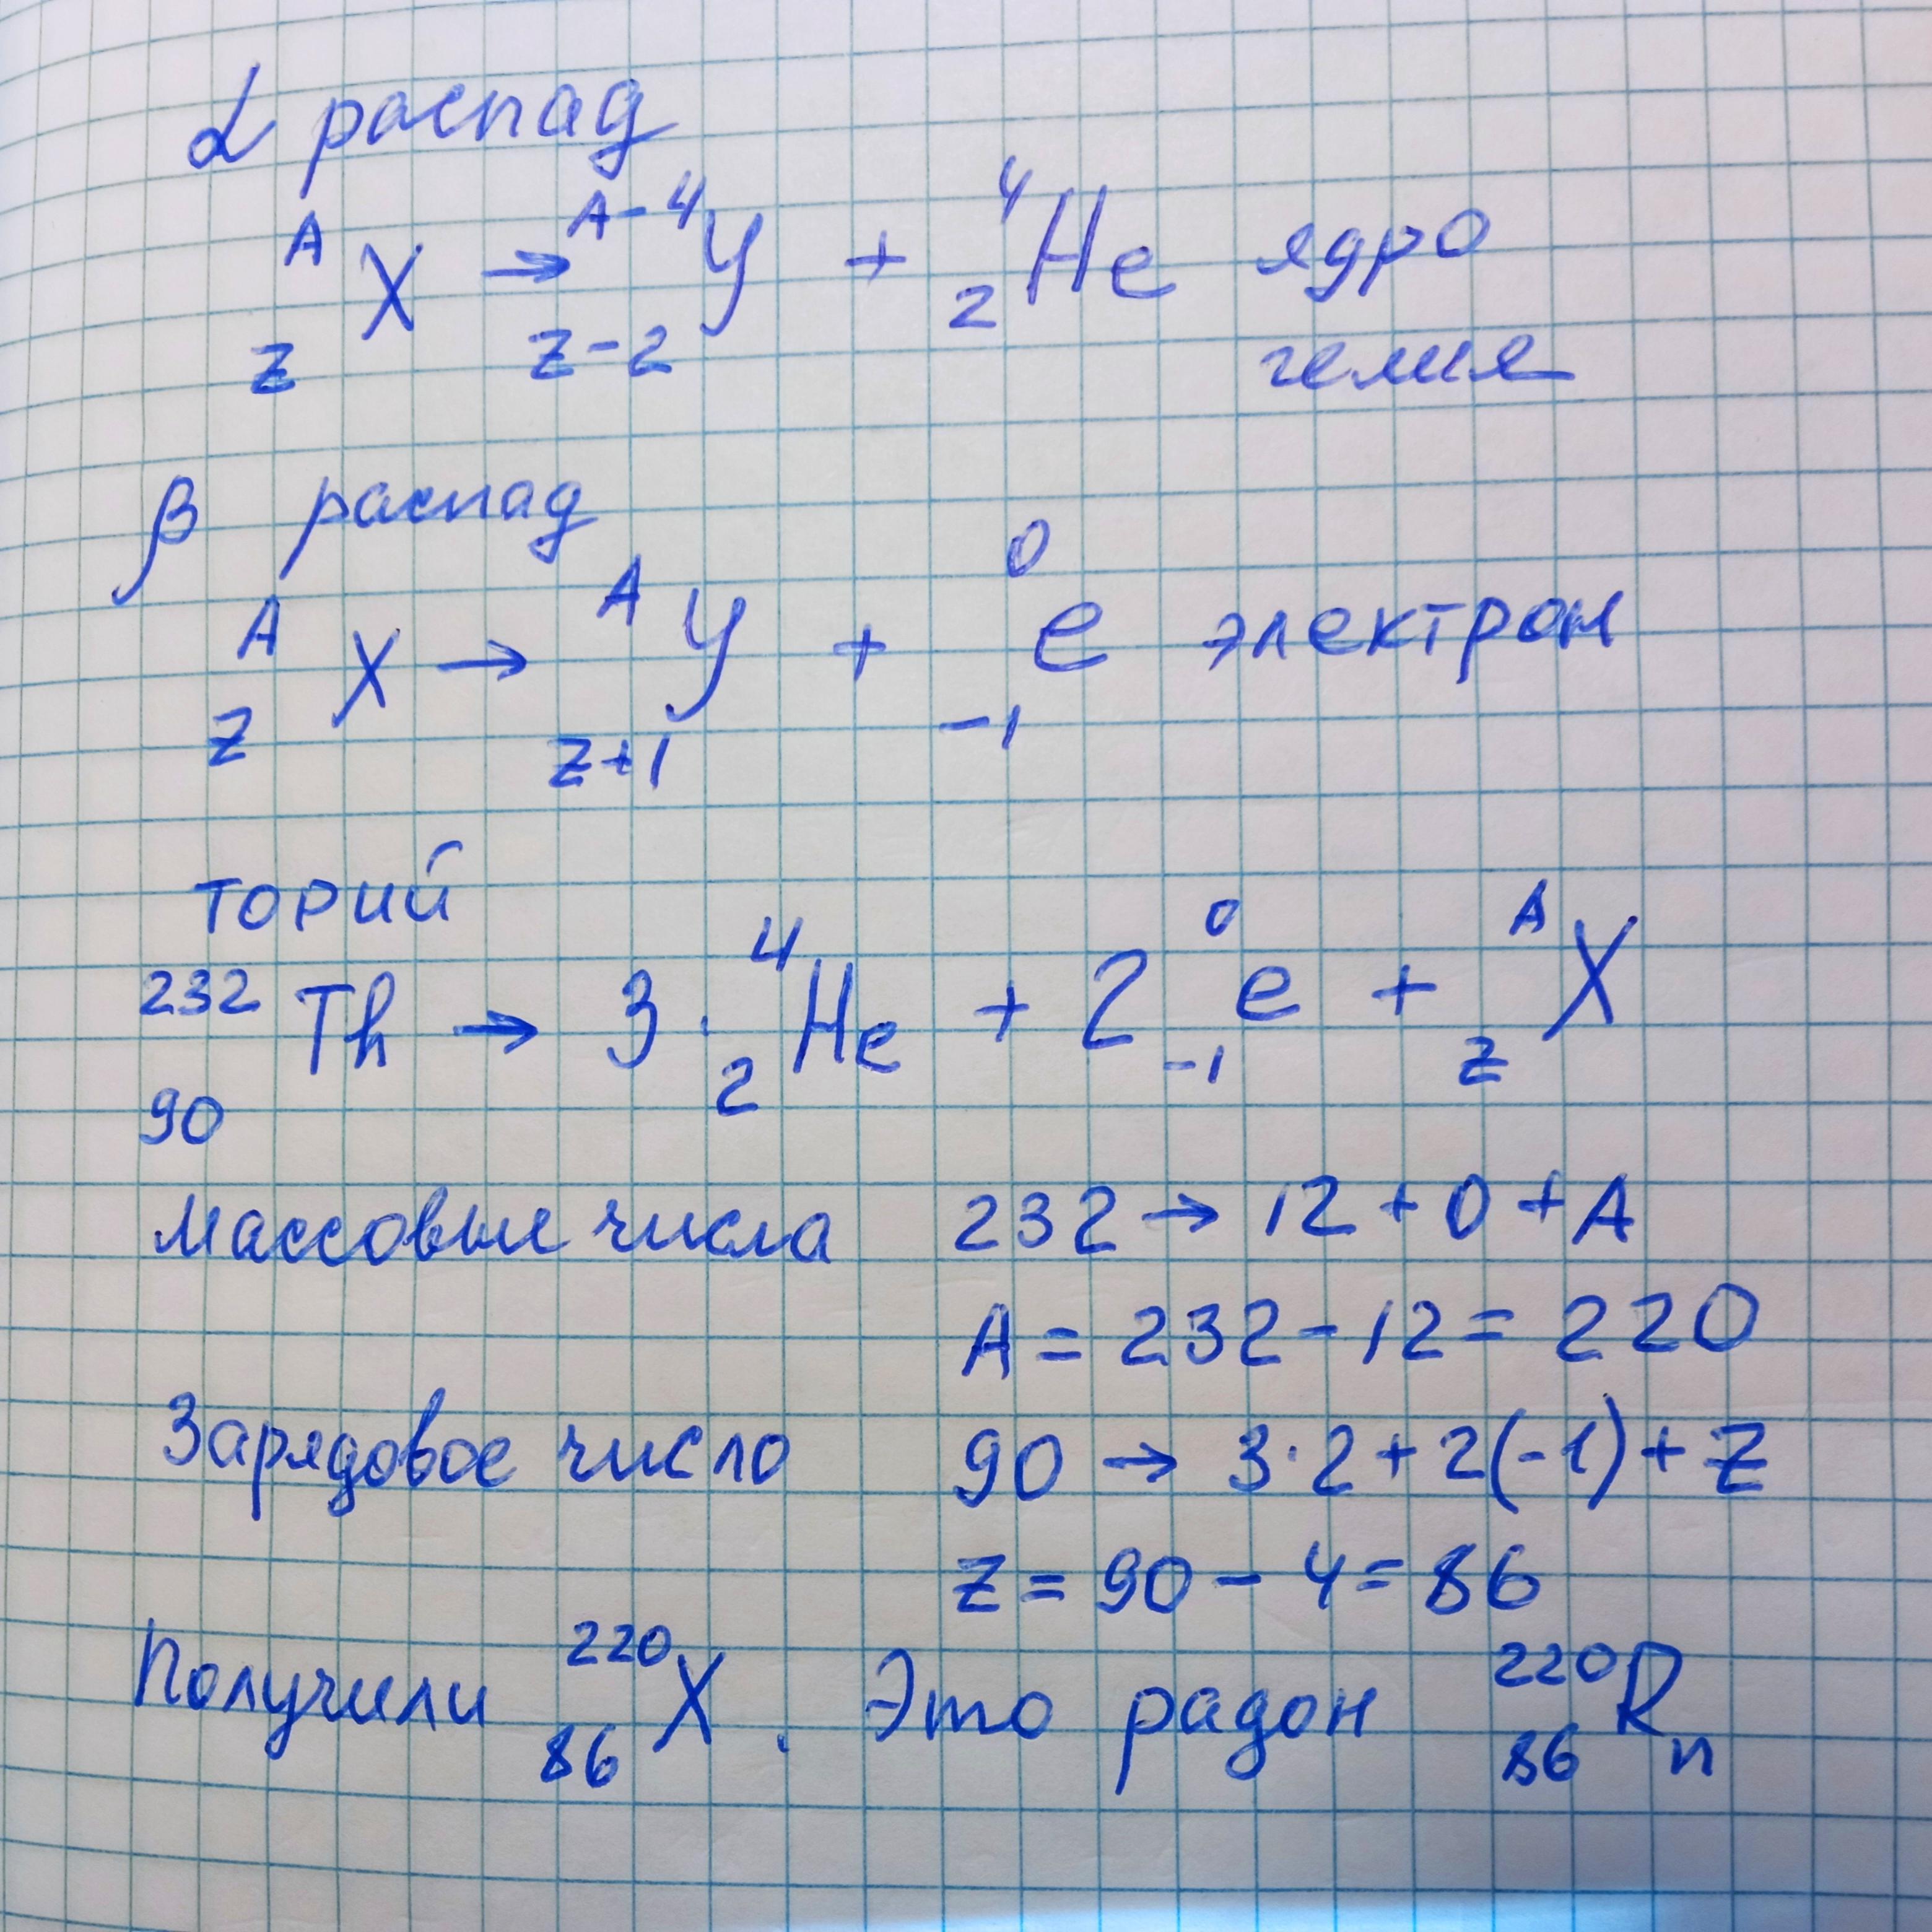 α распад
ᴬ_Z X → ᴬ⁻⁴_Z-2 У + ⁴₂He ядро
гелия
β распад
ᴬ_Z X → ᴬ_Z+1 У + ⁰₋₁e электрон
торий
²³²₉₀Th → 3 · ⁴₂He + 2 ⁰₋₁e + ᴬ_Z X
Массовые числа 232 → 12 + 0 + A
A = 232 - 12 = 220
Зарядовое число 90 → 3·2 + 2(-1) + Z
Z = 90 - 4 = 86
Получили ²²⁰₈₆X. Это радон ²²⁰₈₆Rn